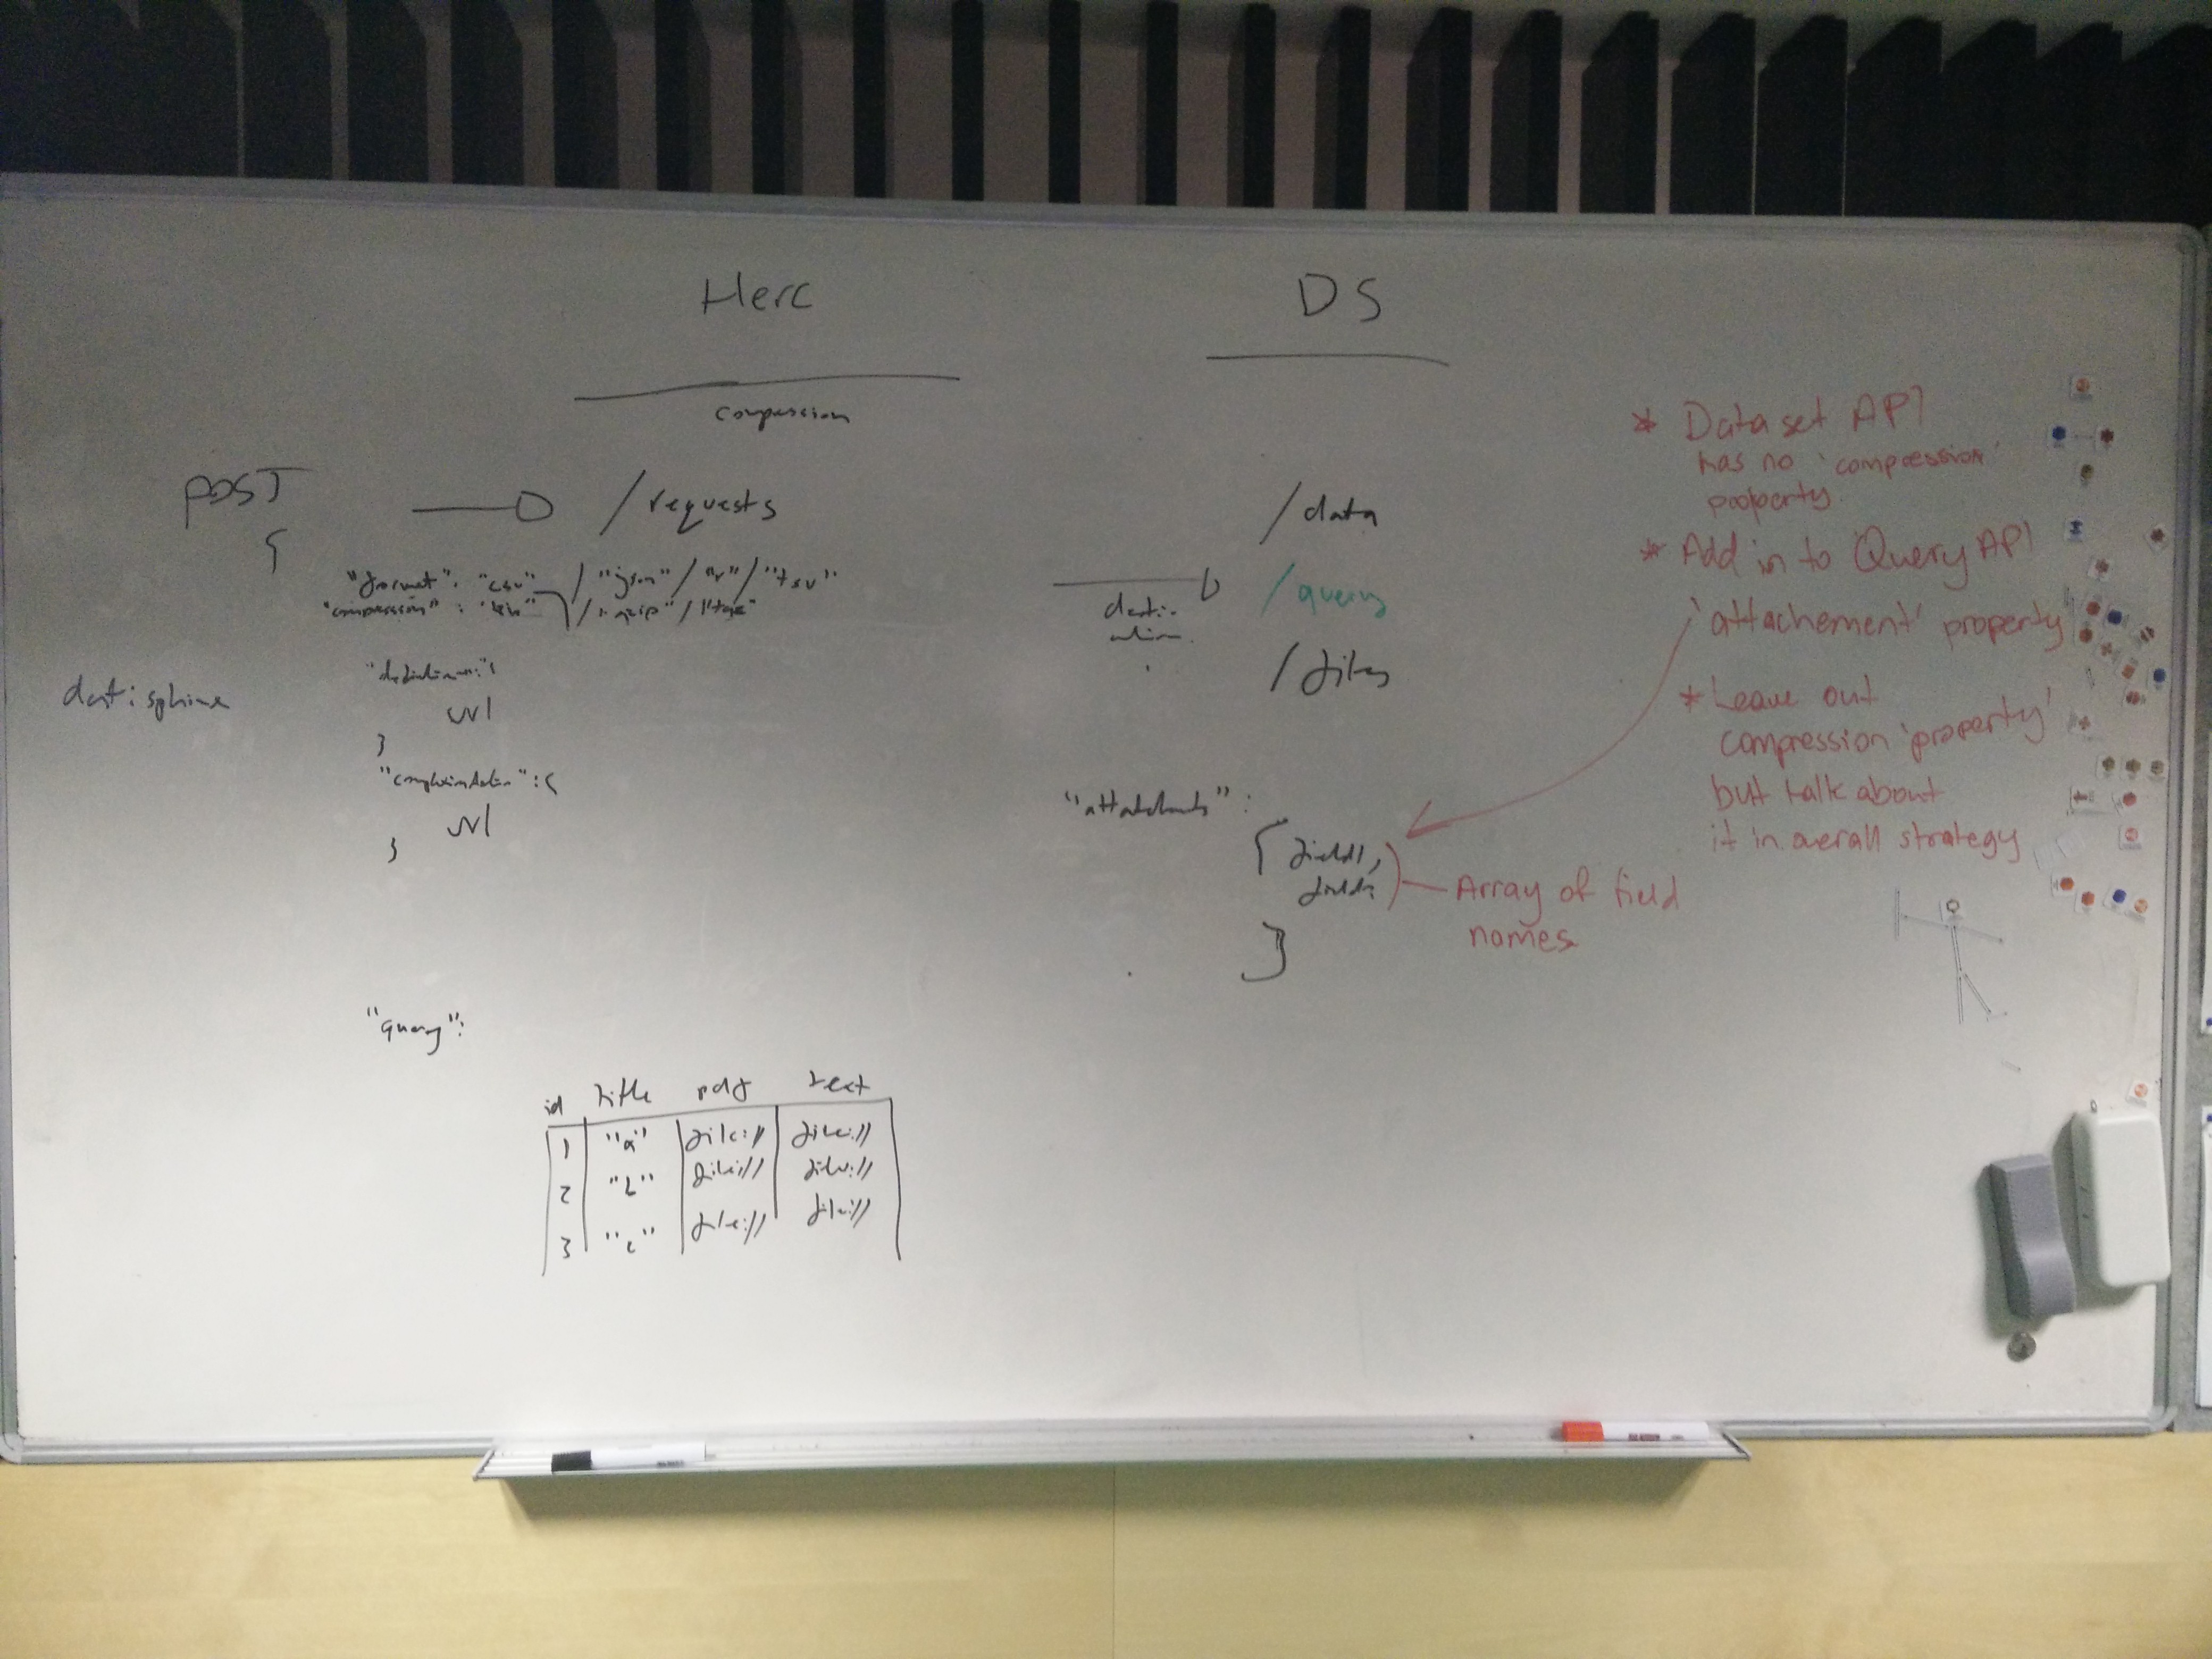 Herc
compression
POST
/requests
{
"format": "csv" / "json" / "r" / "tsv"
"compression" : / "gzip" /
url
}
" : {
url
}
"query":
id title pdf text
1 "a" file:// file://
2 "b" file:// file://
3 "c" file:// file://
DS
/data
/query
/files
"attachments" :
{ field1,
field2
]
Array of field
names
* Dataset API
has no 'compression'
poolperty.
* Add in to Query API
'attachement' property
* Leave out
compression 'property'
but talk about
it in overall strategy